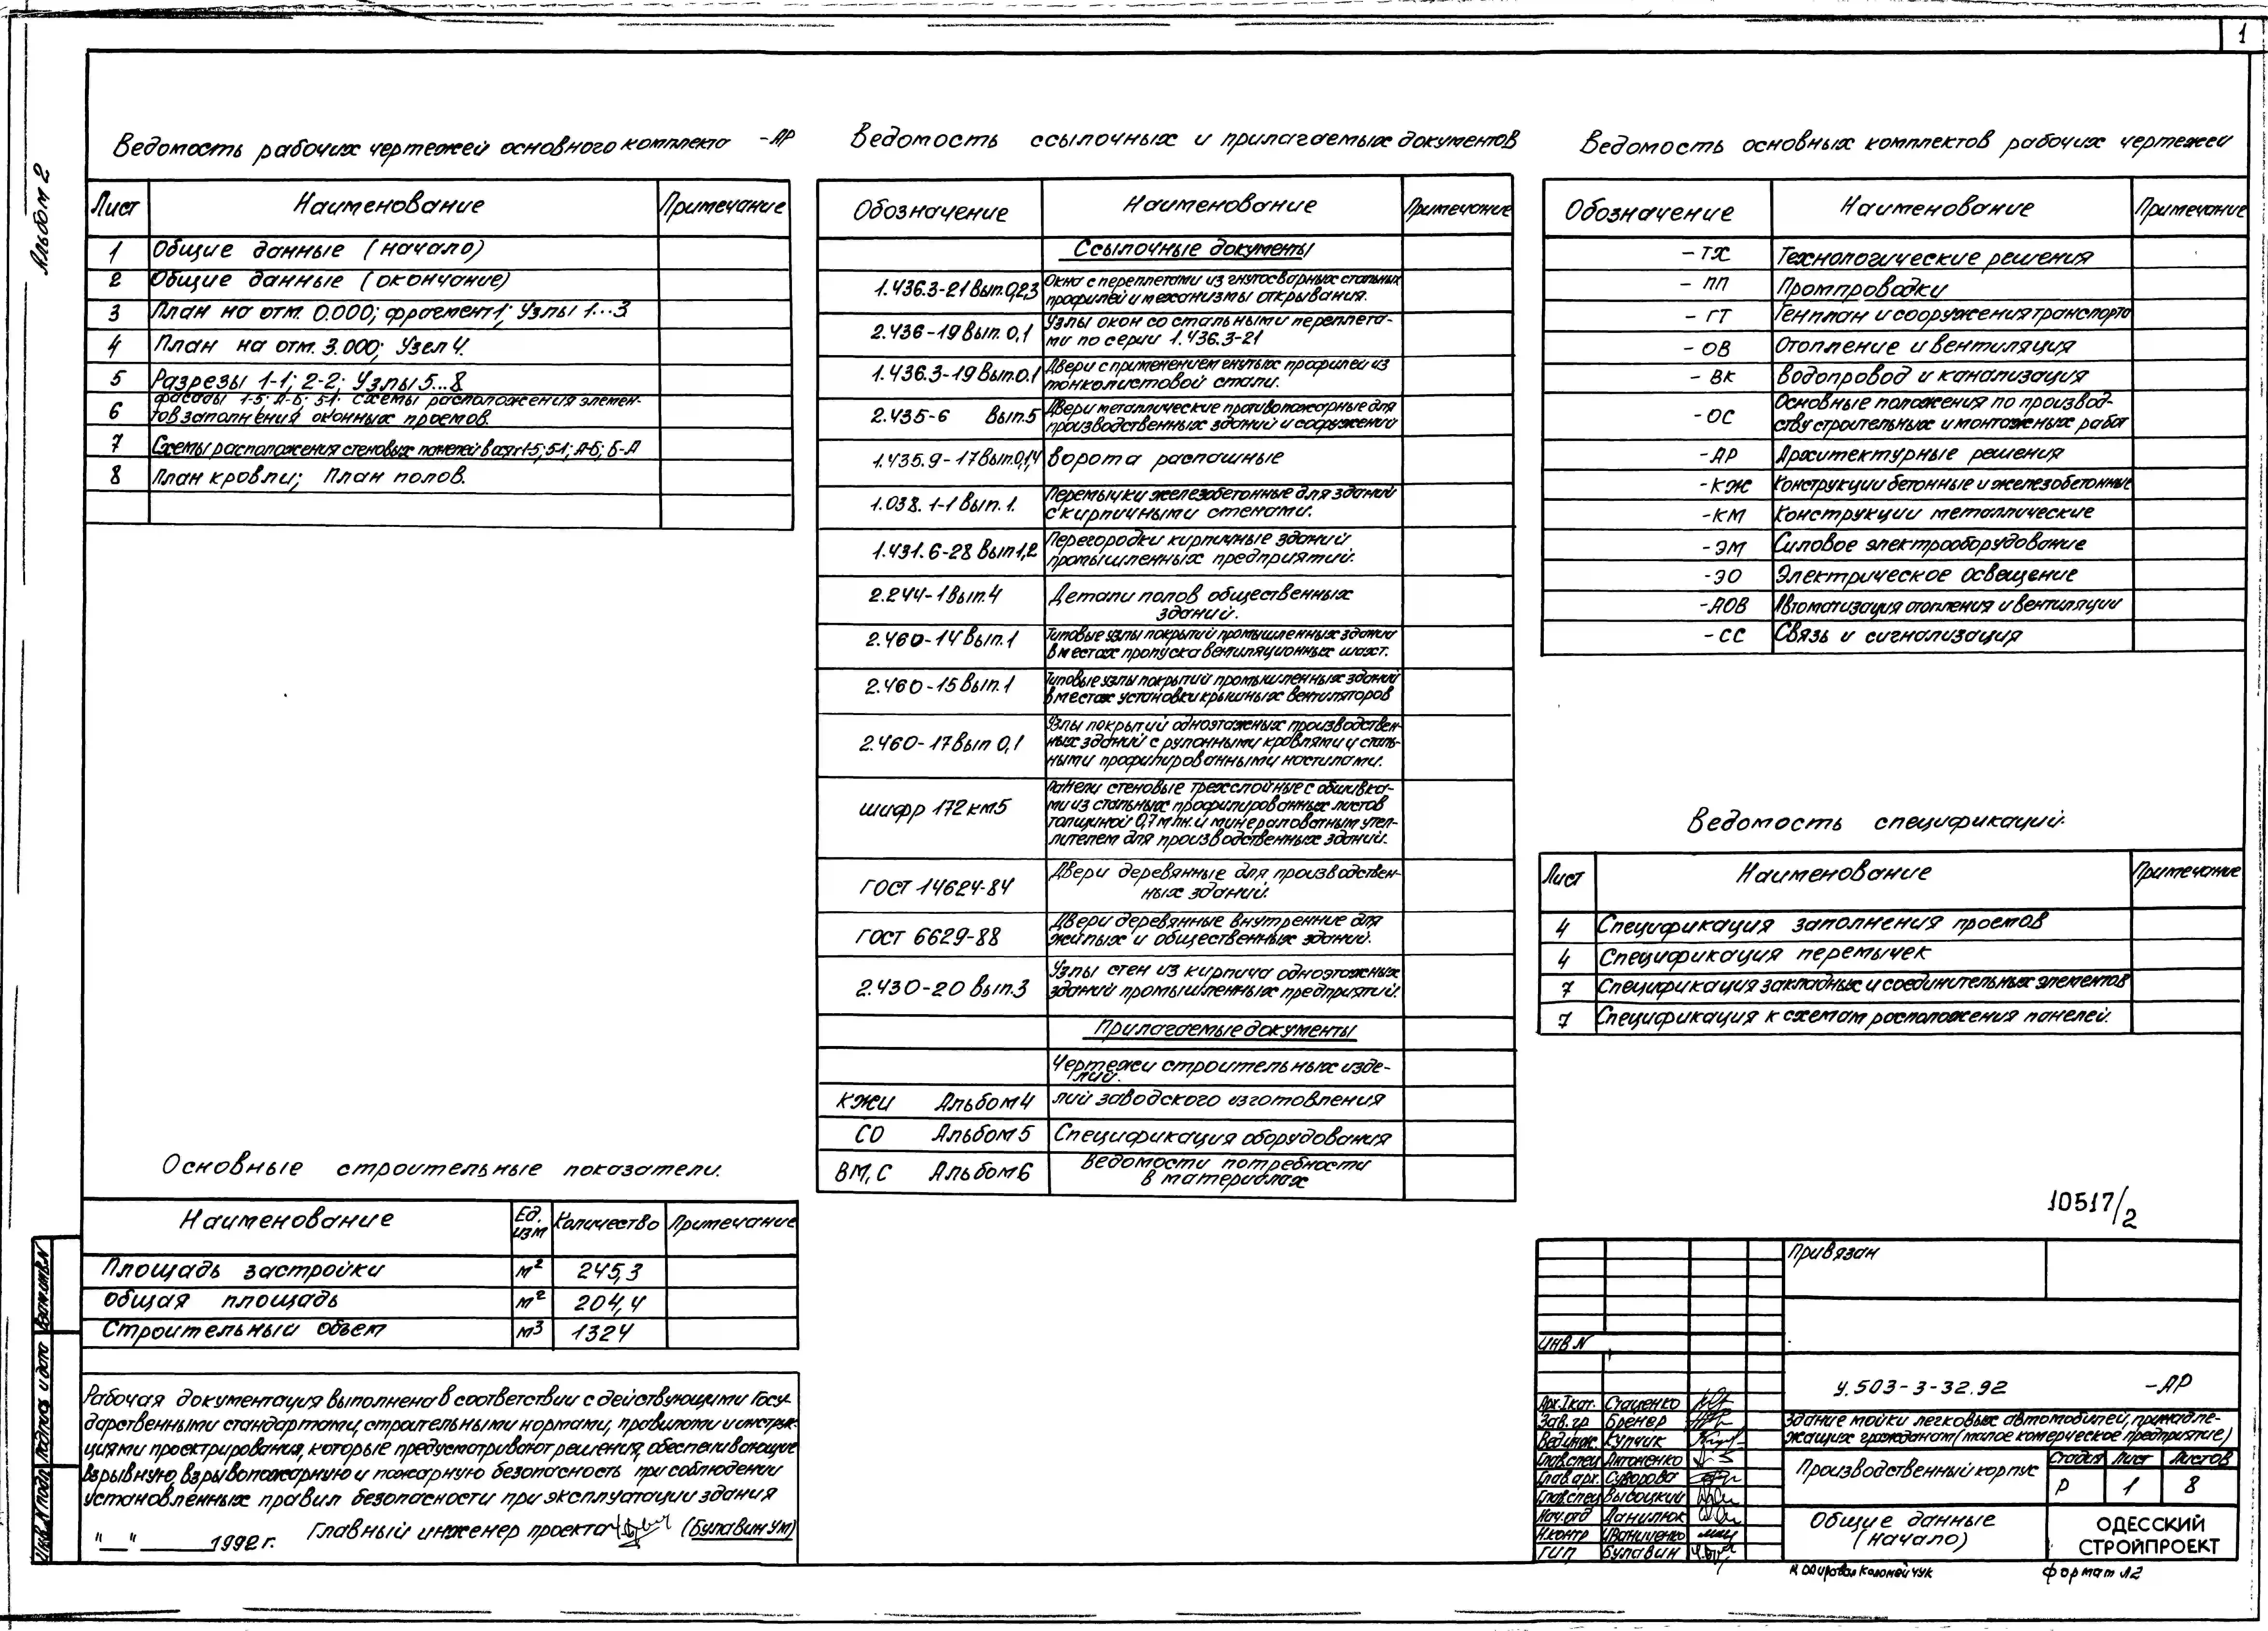 1
Альбом 2
Ведомость рабочих чертежей основного комплекта -АР
Лист Наименование Примечание
1 Общие данные (начало)
2 Общие данные (окончание)
3 План на отм. 0.000; фрагмент 1; Узлы 1...3
4 План на отм. 3.000; Узел 4.
5 Разрезы 1-1; 2-2; Узлы 5...8
6 Фасады 1-5; А-Б; 5-1. Схемы расположения элемен-
тов заполнения оконных проемов.
7 Схемы расположения стеновых панелей в осях 1-5; 5-1; А-Б; Б-А
8 План кровли; План полов.
Основные строительные показатели.
Наименование Ед. изм Количество Примечание
Площадь застройки м² 245,3
Общая площадь м² 204,4
Строительный объем м³ 1324
Рабочая документация выполнена в соответствии с действующими Госу-
дарственными стандартами, строительными нормами, правилами и инструк-
циями проектирования, которые предусматривают решения, обеспечивающие
взрывную, взрывопожарную и пожарную безопасность при соблюдении
установленных правил безопасности при эксплуатации здания
"__" ______ 1992 г. Главный инженер проекта (Булавин УМ)
Инв.N подл. Подпись и дата Взам.инв.N
Ведомость ссылочных и прилагаемых документов
Обозначение Наименование Примечание
Ссылочные документы
1.436.3-21 Вып.0,2,3 Окна с переплетами из гнутосварных стальных
профилей и механизмы открывания.
2.436-19 Вып. 0,1 Узлы окон со стальными переплета-
ми по серии 1.436.3-21
1.436.3-19 Вып.0.1 Двери с применением гнутых профилей из
тонколистовой стали.
2.435-6 Вып.5 Двери металлические противопожарные для
производственных зданий и сооружений
1.435.9-17 Вып.0,1,4 Ворота распашные
1.038.1-1 Вып. 1. Перемычки железобетонные для зданий
с кирпичными стенами.
1.431.6-28 Вып 1,2 Перегородки кирпичные зданий
промышленных предприятий.
2.244-1 Вып.4 Детали полов общественных
зданий.
2.460-14 Вып.1 Типовые узлы покрытий промышленных зданий
в местах пропуска вентиляционных шахт.
2.460-15 Вып.1 Типовые узлы покрытий промышленных зданий
в местах установки крышных вентиляторов
2.460-17 Вып 0,1 Узлы покрытий одноэтажных производствен-
ных зданий с рулонными кровлями и сталь-
ными профилированными настилами.
шифр 172 км5 Панели стеновые трехслойные с обшивка-
ми из стальных профилированных листов
толщиной 0,7 м лн. и минераловатным утеп-
лителем для производственных зданий.
ГОСТ 14624-84 Двери деревянные для производствен-
ных зданий.
ГОСТ 6629-88 Двери деревянные внутренние для
жилых и общественных зданий.
2.430-20 Вып.3 Узлы стен из кирпича одноэтажных
зданий промышленных предприятий.
Прилагаемые документы
Чертежи строительных изде-
лий.
КЖИ Альбом 4 лий заводского изготовления
СО Альбом 5 Спецификация оборудования
ВМ, С Альбом 6 Ведомости потребности
в материалах
Ведомость основных комплектов рабочих чертежей
Обозначение Наименование Примечание
-ТХ Технологические решения
-ПП Промпроводки
-ГТ Генплан и сооружения транспорта
-ОВ Отопление и вентиляция
-ВК Водопровод и канализация
-ОС Основные положения по производ-
ству строительных и монтажных работ
-АР Архитектурные решения
-КЖ Конструкции бетонные и железобетонные
-КМ Конструкции металлические
-ЭМ Силовое электрооборудование
-ЭО Электрическое освещение
-АОВ Автоматизация отопления и вентиляции
-СС Связь и сигнализация
Ведомость спецификаций.
Лист Наименование Примечание
4 Спецификация заполнения проемов
4 Спецификация перемычек
7 Спецификация закладных и соединительных элементов
7 Спецификация к схемам расположения панелей.
10517/2
Привязан
ИНВ.N
У.503-3-32.92 -АР
Арх.Iкат. Стаценко
Зав.гр Бренер
Вед.инж. Купчик
Глав.спец Антоненко
Глав.арх. Суворова
Глав.спец Высоцкий
Нач.отд Данилюк
Н.контр Иваниченко
ГИП Булавин
Здание мойки легковых автомобилей, принадле-
жащих гражданам (малое комерческое предприятие)
Производственный корпус
Стадия Лист Листов
Р 1 8
Общие данные
(начало)
ОДЕССКИЙ
СТРОЙПРОЕКТ
Копировал Коломейчук
Формат А2